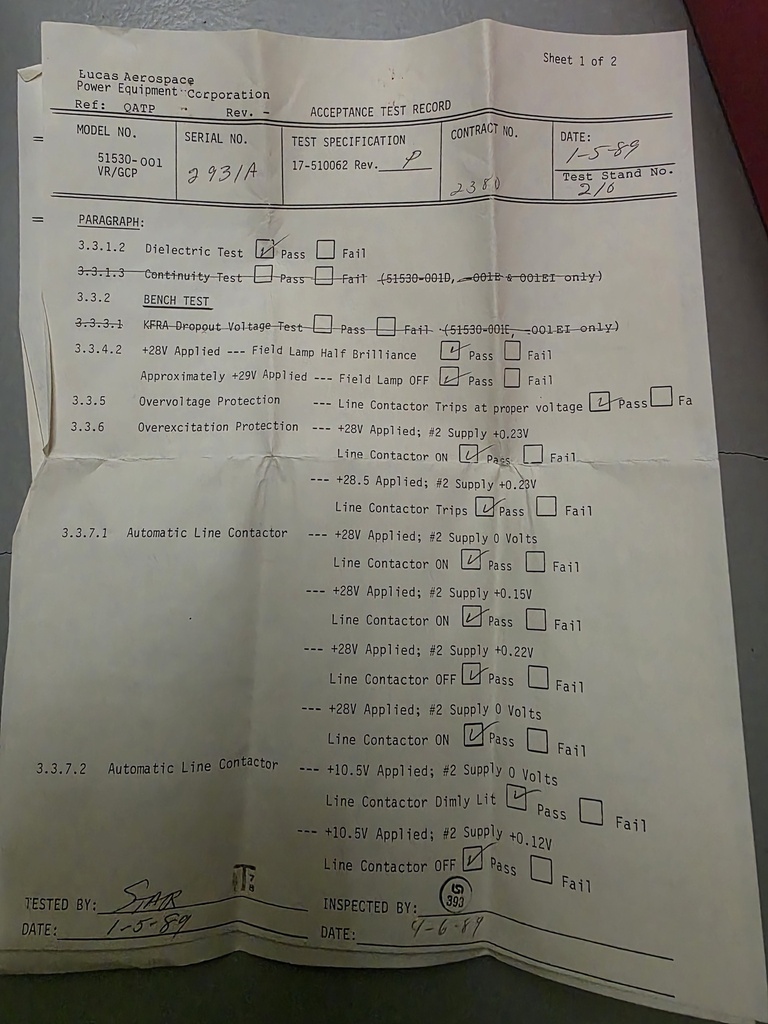 Sheet 1 of 2
Lucas Aerospace
Power Equipment Corporation
Ref: QATP - Rev. -
ACCEPTANCE TEST RECORD
MODEL NO. SERIAL NO. TEST SPECIFICATION CONTRACT NO. DATE:
51530-001 2931A 17-510062 Rev. P 2380 1-5-89
VR/GCP Test Stand No.
216
PARAGRAPH:
3.3.1.2 Dielectric Test Pass Fail
3.3.1.3 Continuity Test Pass Fail (51530-001D, -001E & 001EI only)
3.3.2 BENCH TEST
3.3.3.1 KFRA Dropout Voltage Test Pass Fail (51530-001E, -001EI only)
3.3.4.2 +28V Applied --- Field Lamp Half Brilliance Pass Fail
Approximately +29V Applied --- Field Lamp OFF Pass Fail
3.3.5 Overvoltage Protection --- Line Contactor Trips at proper voltage Pass Fa
3.3.6 Overexcitation Protection --- +28V Applied; #2 Supply +0.23V
Line Contactor ON Pass Fail
--- +28.5 Applied; #2 Supply +0.23V
Line Contactor Trips Pass Fail
3.3.7.1 Automatic Line Contactor --- +28V Applied; #2 Supply 0 Volts
Line Contactor ON Pass Fail
--- +28V Applied; #2 Supply +0.15V
Line Contactor ON Pass Fail
--- +28V Applied; #2 Supply +0.22V
Line Contactor OFF Pass Fail
--- +28V Applied; #2 Supply 0 Volts
Line Contactor ON Pass Fail
3.3.7.2 Automatic Line Contactor --- +10.5V Applied; #2 Supply 0 Volts
Line Contactor Dimly Lit Pass Fail
--- +10.5V Applied; #2 Supply +0.12V
Line Contactor OFF Pass Fail
TESTED BY: T 78 INSPECTED BY: 393
DATE: 1-5-89 DATE: 4-6-89